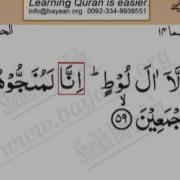 Learning Quran is easy
info@bayaan.org 0092-334-9939551
لَّآ اٰلَ لُوْطٍ ؕ اِنَّا لَمُنَجُّوْهُ
جْمَعِيْنَ ۙ﴿۵۹﴾